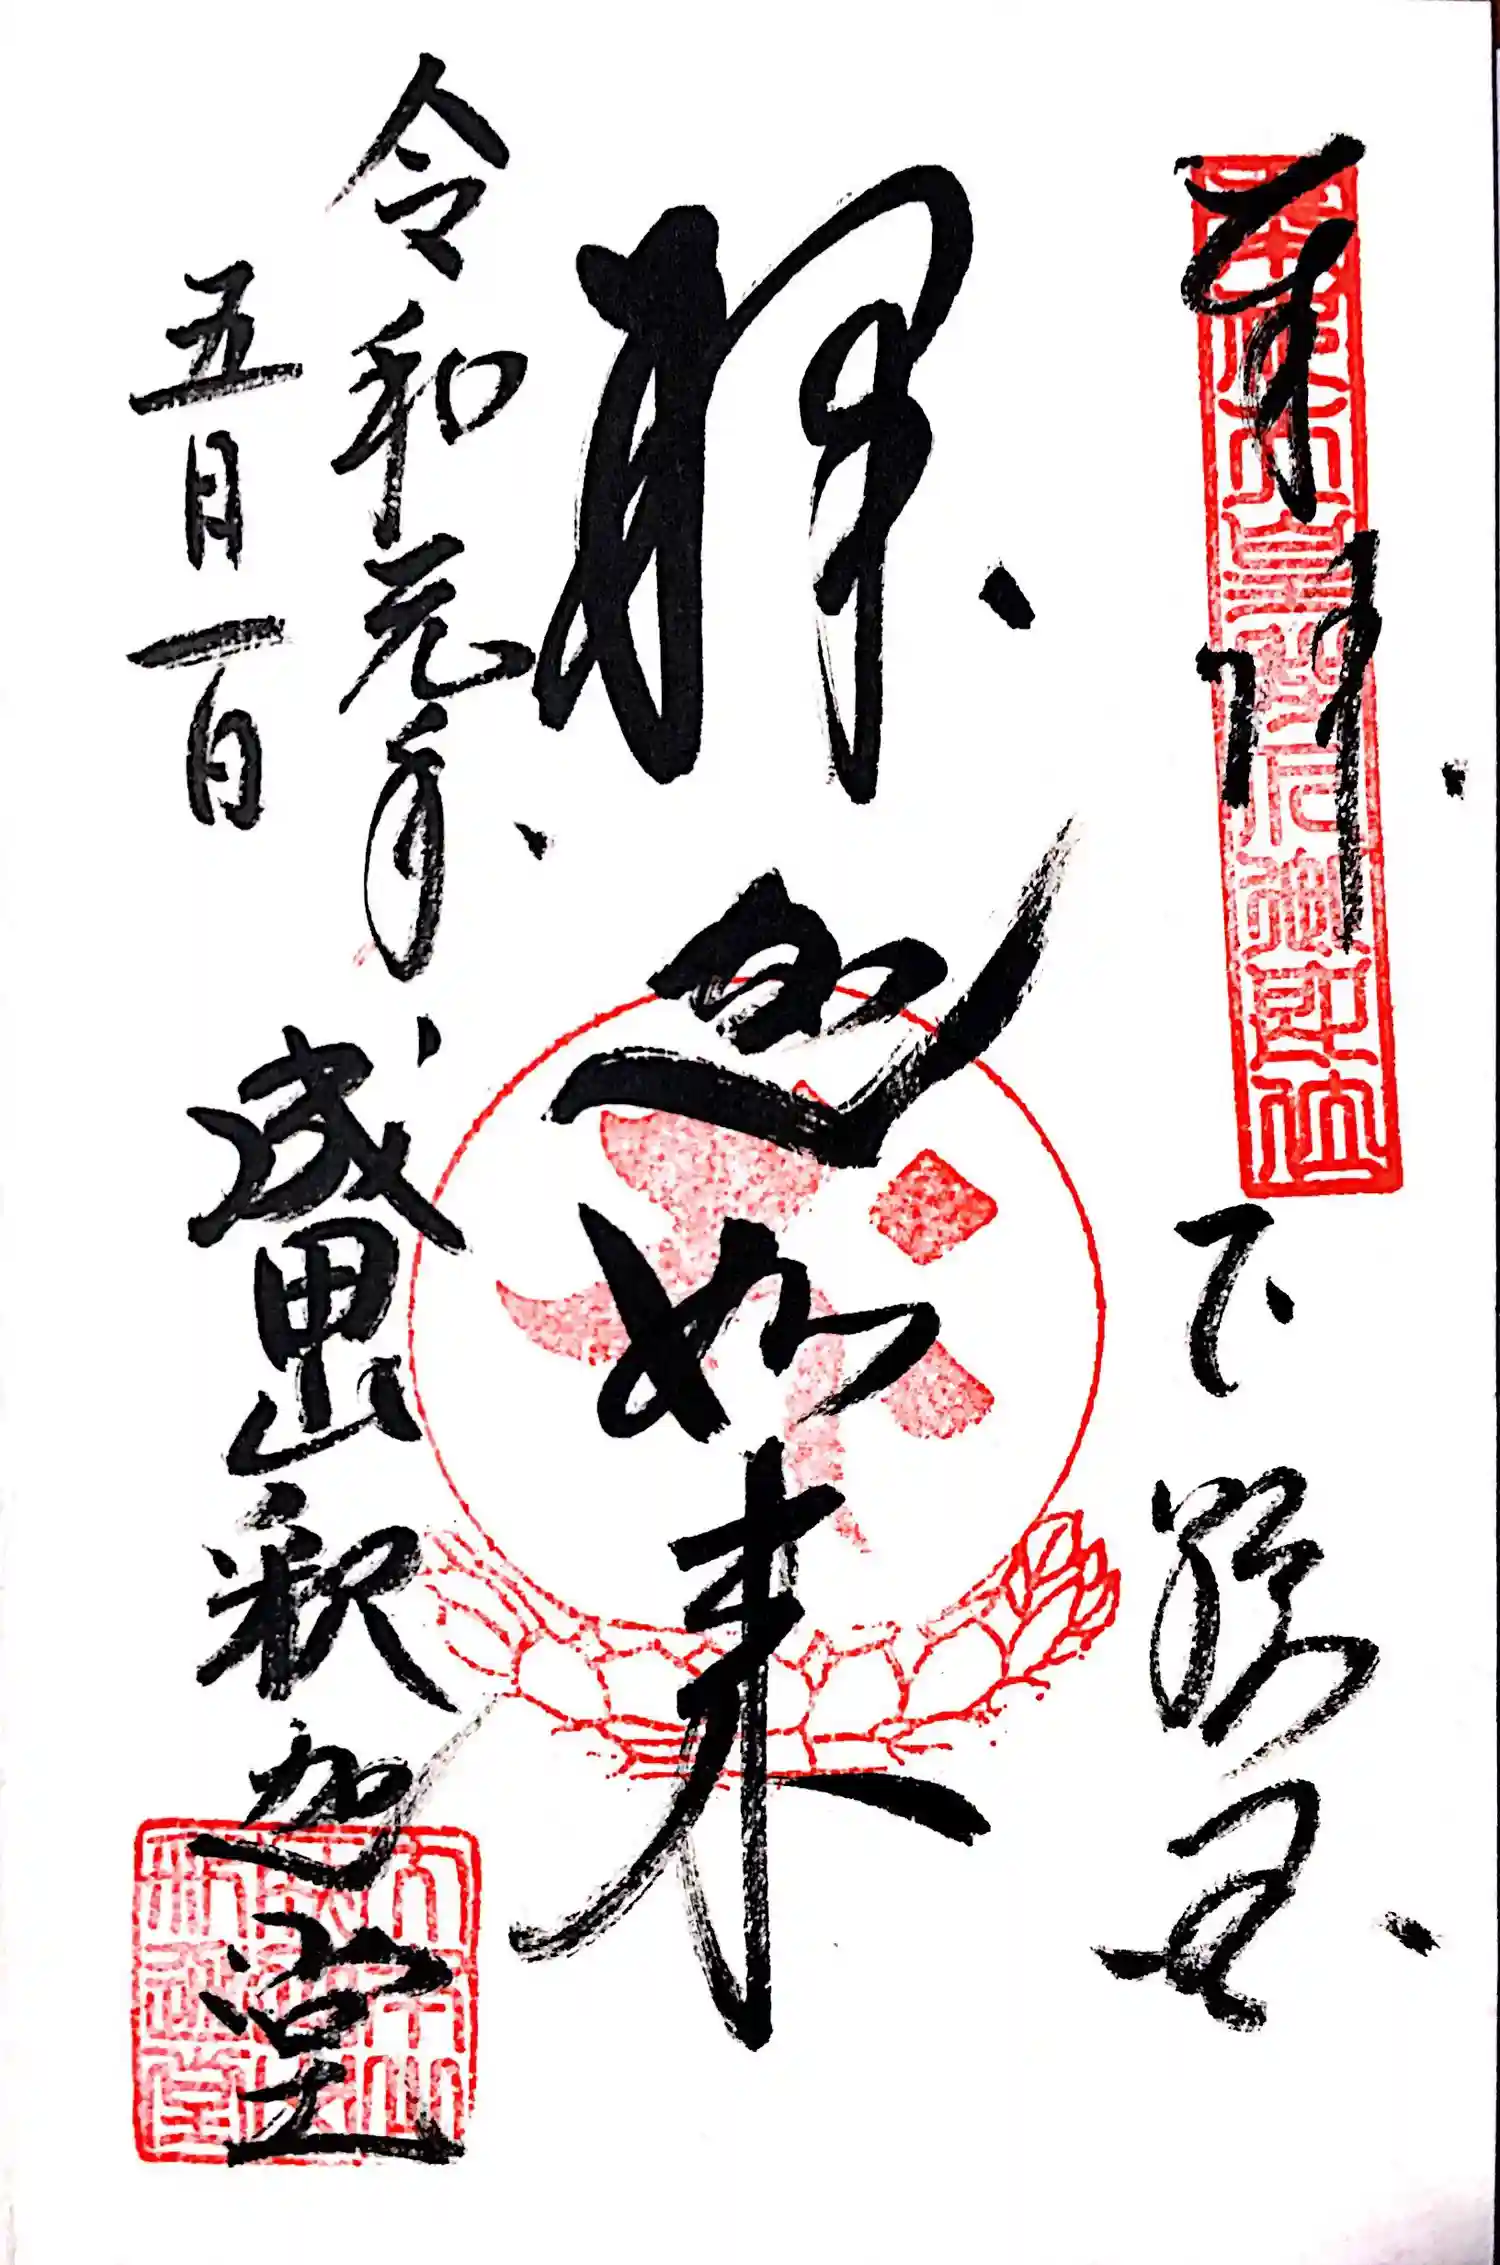 奉拝 下総国
釈迦如来
令和元年
五月一日
成田山釈迦堂